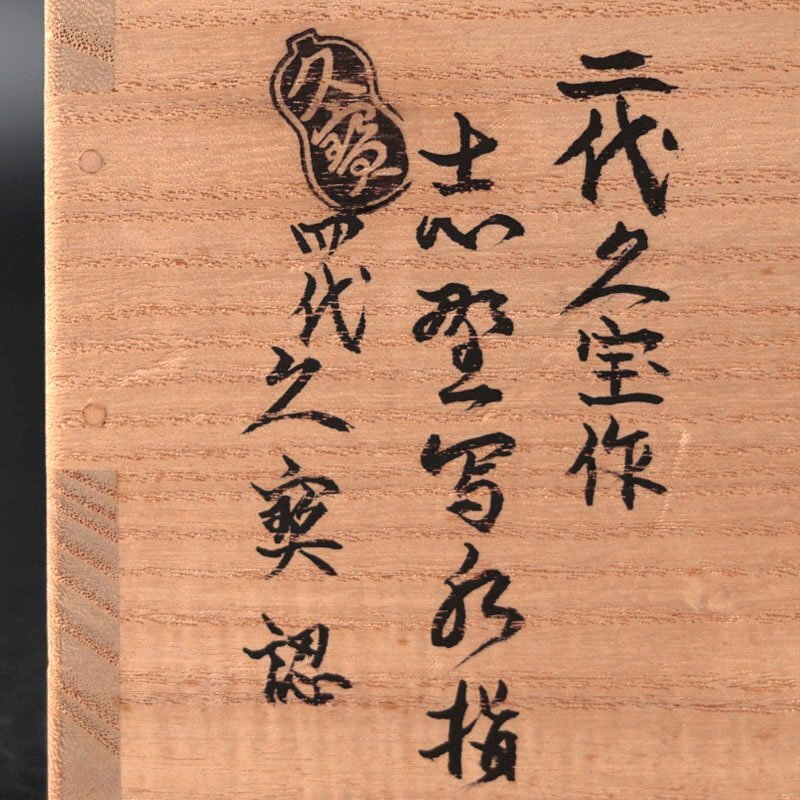 二代久宝作
志野写水指
四代久寳認
久寳